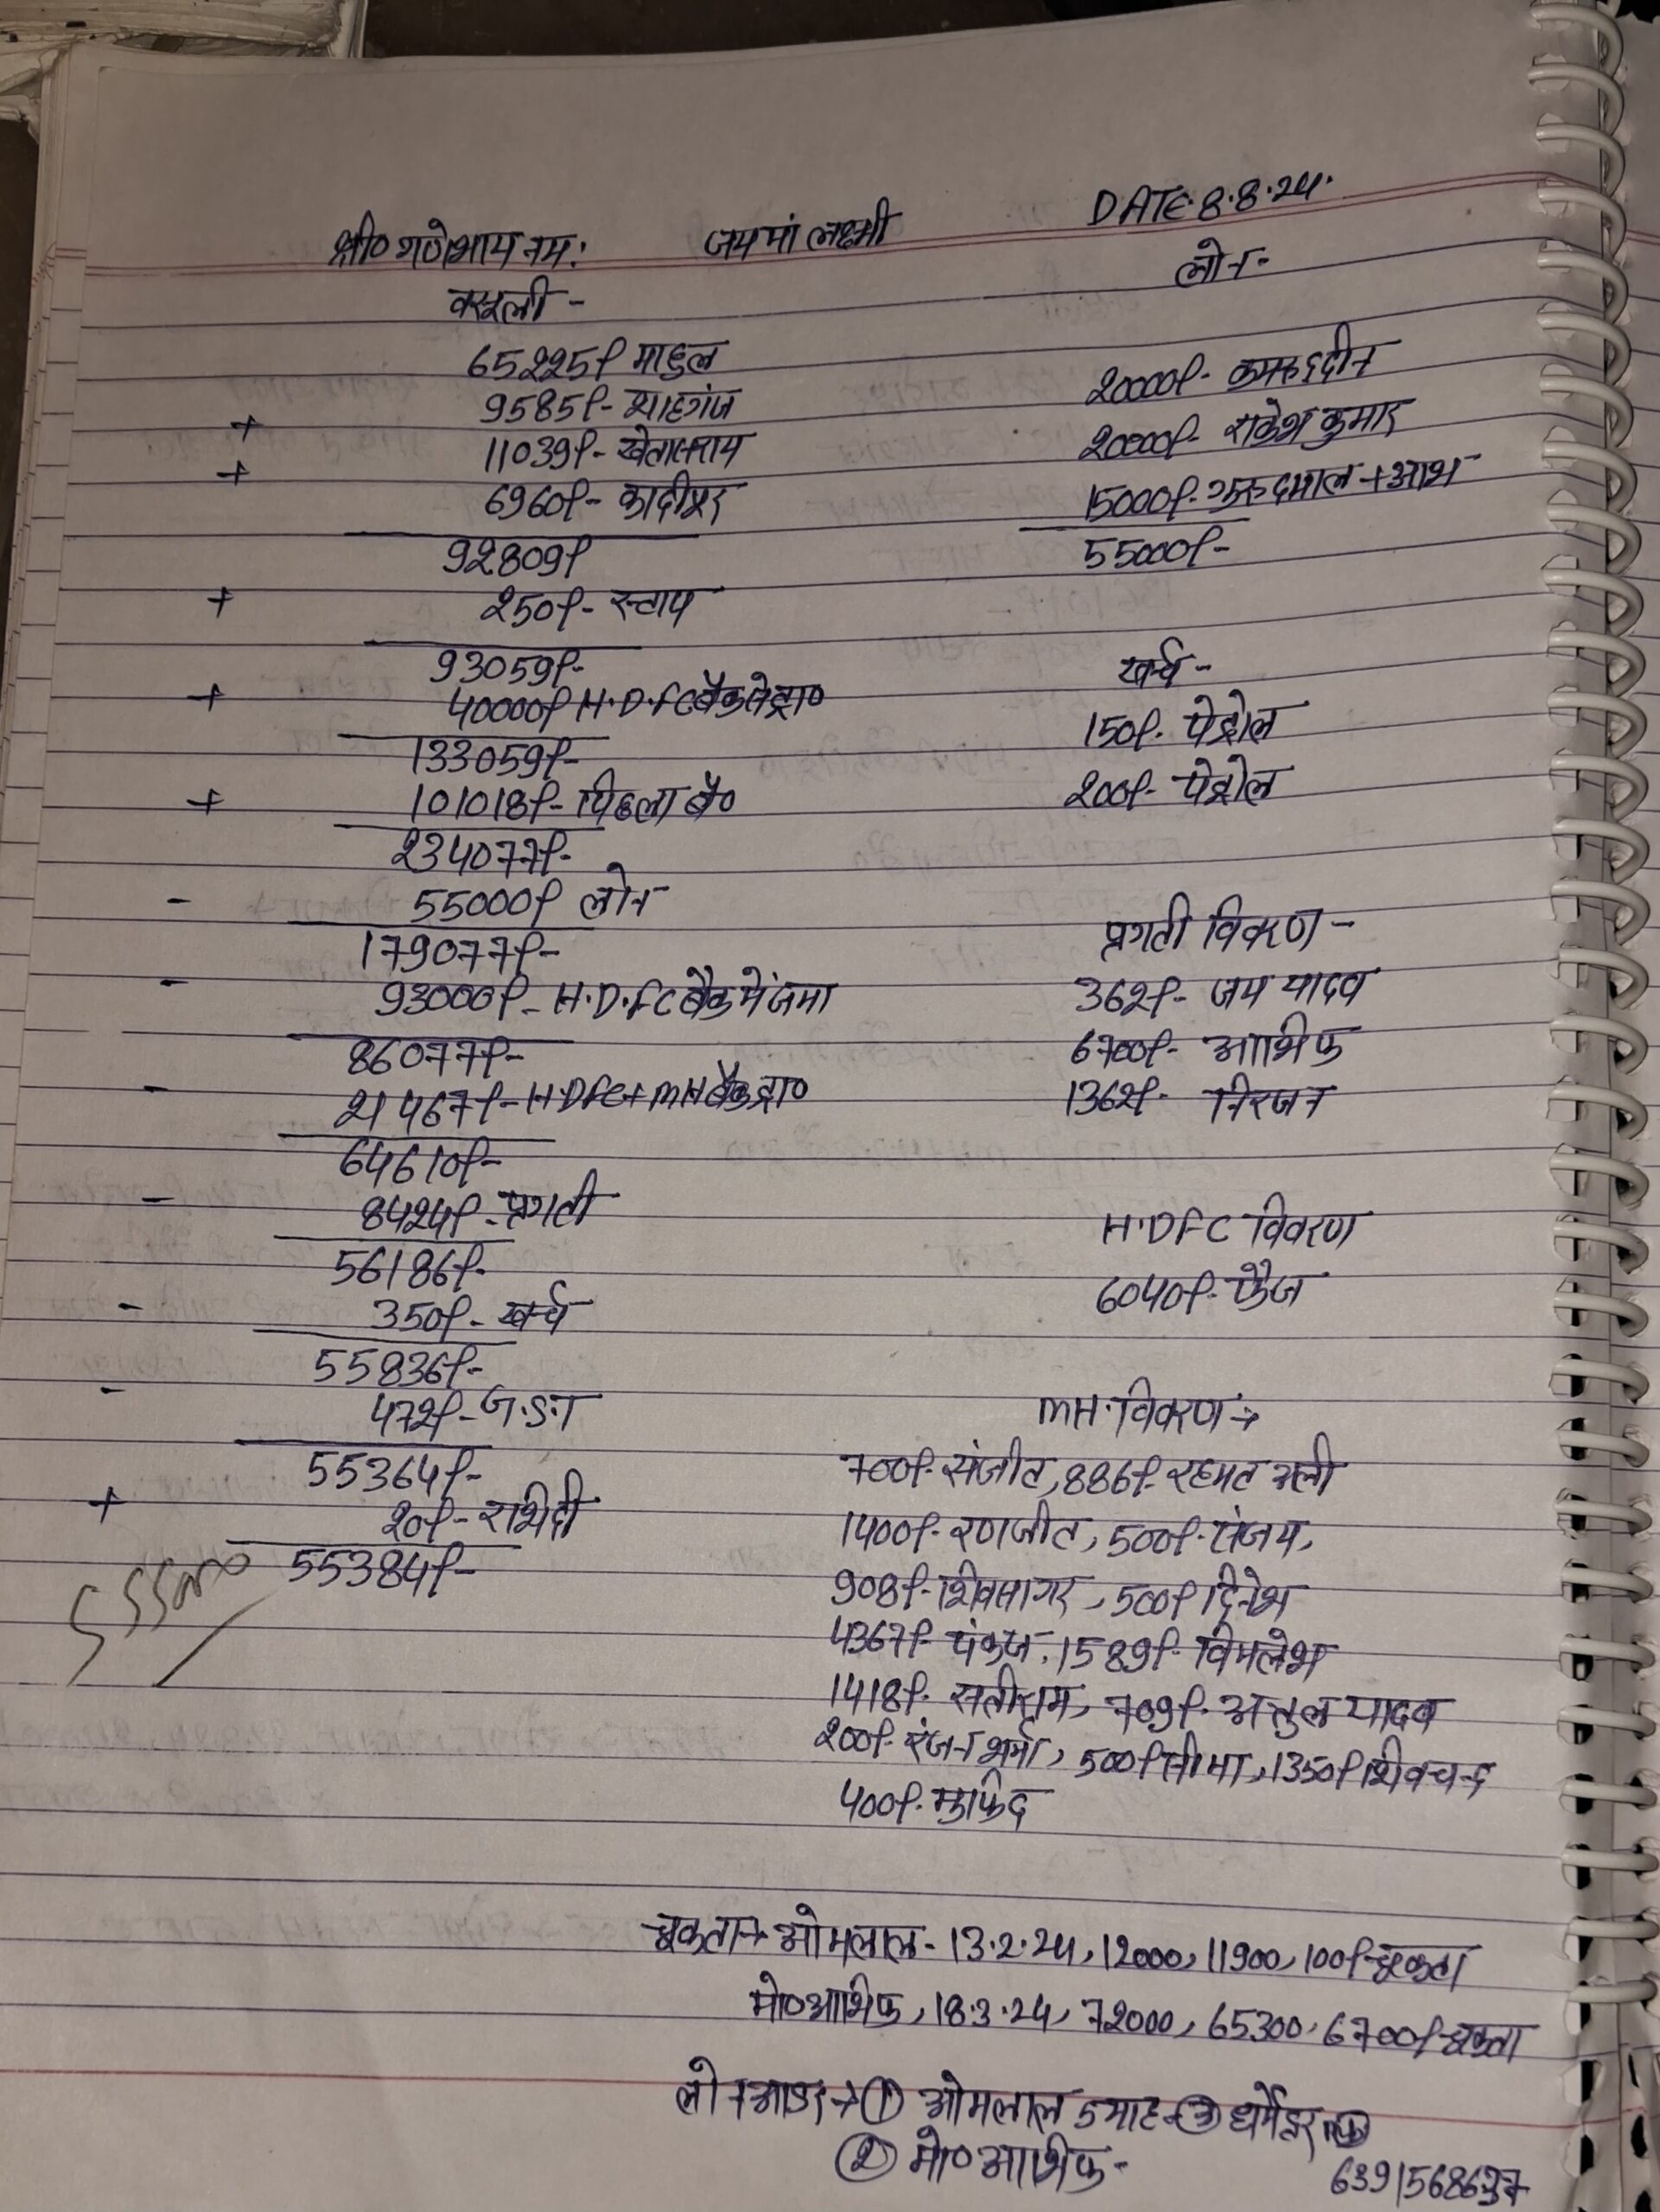 श्री० गणेशाय नमः जय मां लक्ष्मी DATE.8.8.24.
वसूली -
लोन-
65225/ माहुल
9585/- शाहगंज
+ 11039/- खेतासराय
+ 6960/- कादीपुर
92809/
+ 250/- स्टाप
93059/-
+ 40000/ H.D.FC बैंक से प्रा०
133059/-
+ 101018/- पिछला बै०
234077/-
- 55000/ लोन
179077/-
- 93000/- H.D.FC बैंक मे जमा
86077/-
- 21467/- H.DFC+MH बैंक प्रा०
64610/-
- 8424/- प्रगती
56186/-
- 350/- खर्च
55836/-
- 472/- G.S.T
55364/-
+ 20/- राशेदी
55384/-
20000/- कमरुद्दीन
20000/- राकेश कुमार
15000/-
55000/-
खर्च-
150/- पेट्रोल
200/- पेट्रोल
प्रगती विवरण -
362/- जय यादव
6700/- आशिफ
1362/- निरजन
H.DFC विवरण
6040/- फैज
MH. विवरण →
700/- संजीत, 886/- रहमत अली
1400/- रणजीत, 500/- संजय,
908/- शिवसागर, 500/ दिनेश
4367/- पंकज, 1589/- विमलेश
1418/- सतीराम, 709/- अतुल यादव
200/- रंजना शर्मा, 500/ सीमा, 1350/ शिवचन्द
400/-
चुकता → ओमलाल - 13.2.24, 12000, 11900, 100/- चुकता
मो० आशिफ, 18.3.24, 72000, 65300, 6700/- चुकता
लोन आडर → ① ओमलाल ③ धर्मेंद्र
② मो० आशिफ -